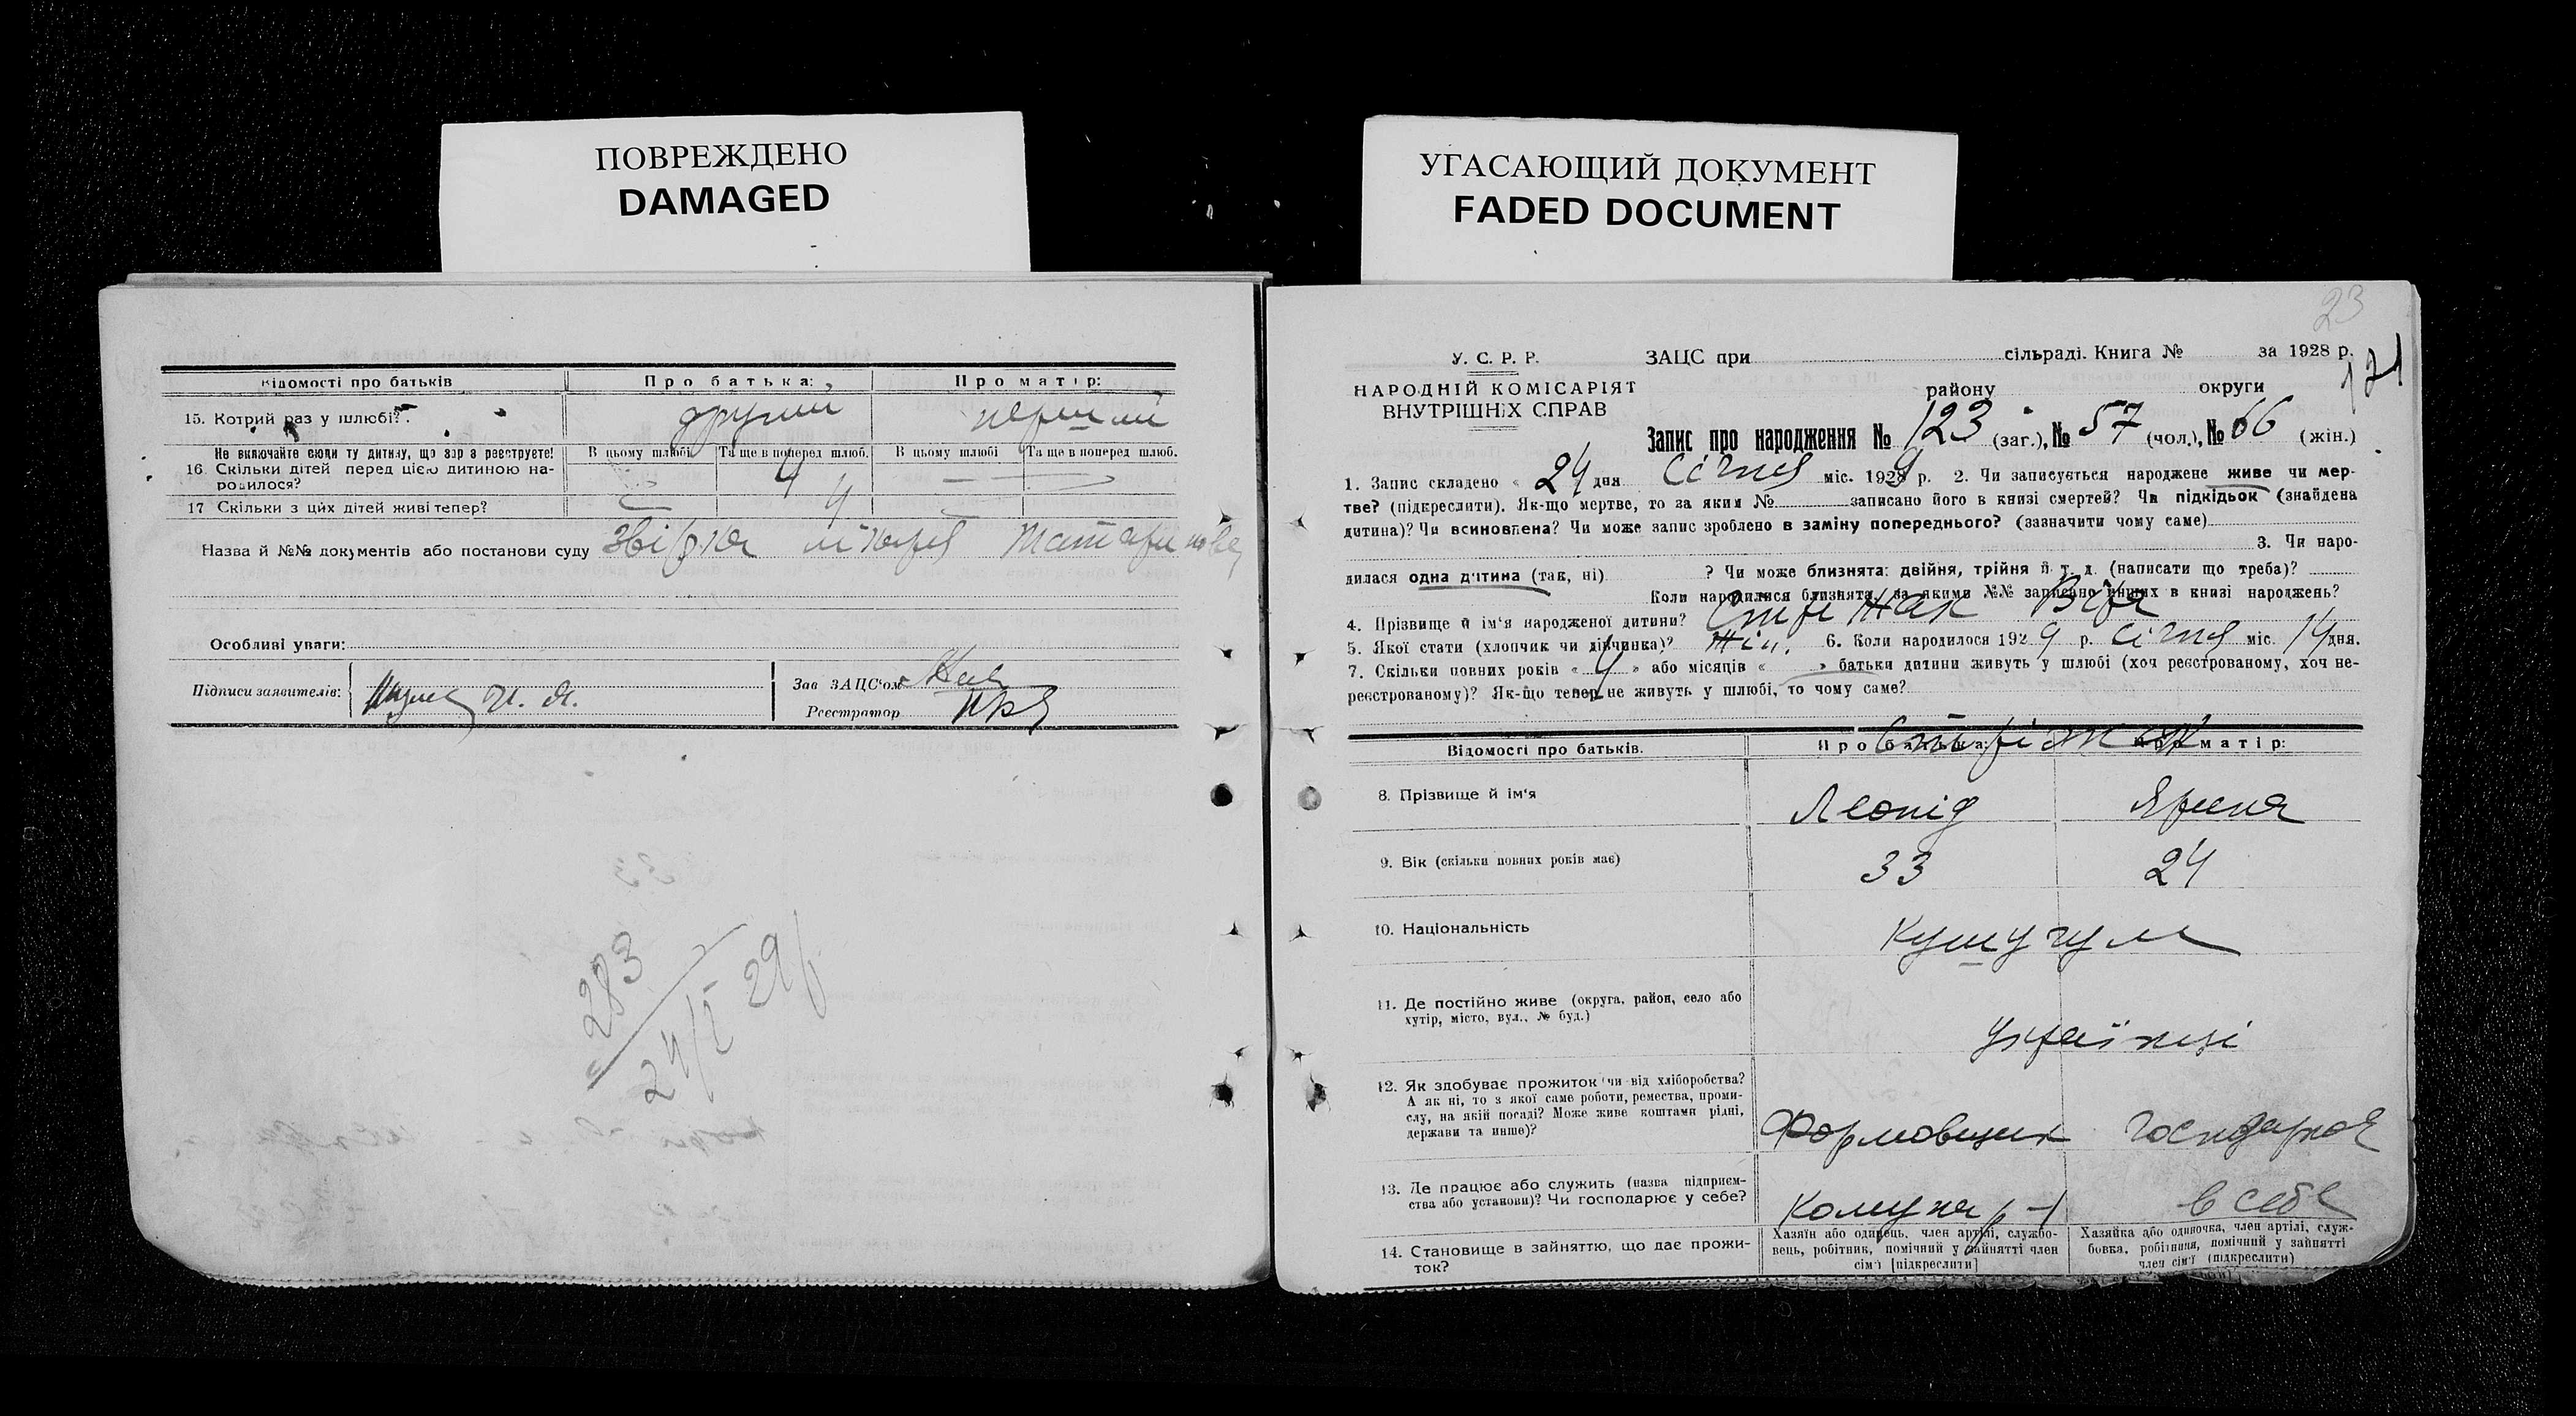 ПОВРЕЖДЕНО
DAMAGED
УГАСАЮЩИЙ ДОКУМЕНТ
FADED DOCUMENT
Відомості про батьків
Про батька:
Про матір:
15. Котрий раз у шлюбі?
другий
перший
Не включайте сюди ту дитину, що зараз реєструєте!
16. Скільки дітей перед цією дитиною народилося?
В цьому шлюбі
Та ще в поперед шлюб.
В цьому шлюбі
Та ще в поперед шлюб.
4
17 Скільки з цих дітей живі тепер?
4
Назва й №№ документів або постанови суду
Особливі уваги:
Підписи заявителів:
Зав ЗАЦС'ом
Реєстратор
283
24/I 29р
23
171
У. С. Р. Р.
НАРОДНІЙ КОМІСАРІЯТ
ВНУТРІШНІХ СПРАВ
ЗАЦС при сільраді. Книга № за 1928 р.
району округи
Запис про народження № 123 (заг.), № 57 (чол.), № 66 (жін.)
1. Запис складено « 24 дня Січня міс. 1929 р. 2. Чи записується народжене живе чи мер-
тве? (підкреслити). Як-що мертве, то за яким № записано його в книзі смертей? Чи підкідьок (знайдена
дитина)? Чи всиновлена? Чи може запис зроблено в заміну попереднього? (зазначити чому саме)
3. Чи наро-
дилася одна дитина (так, ні) ? Чи може близнята: двійня, трійня й т. д. (написати що треба)?
Коли народилися близнята, за якими №№ записано инших в книзі народжень?
4. Прізвище й ім'я народженої дитини? Стріжак Віра
5. Якої стати (хлопчик чи дівчинка)? Жін. 6. Коли народилося 1929 р. Січня міс. 14 дня.
7. Скільки повних років « 4 » або місяців « » батьки дитини живуть у шлюбі (хоч реєстрованому, хоч не-
реєстрованому)? Як-що тепер не живуть у шлюбі, то чому саме?
Відомості про батьків.
Про батька:
Про матір:
Стріжак
8. Прізвище й ім'я
Леонід
Ярина
9. Вік (скільки повних років має)
33
24
10. Національність
Кушугум
11. Де постійно живе (округа, район, село або
хутір, місто, вул., № буд.)
Українці
12. Як здобуває прожиток чи від хліборобства?
А як ні, то з якої саме роботи, ремества, проми-
слу, на якій посаді? Може живе коштами рідні,
держави та инше)?
Формовщик
Господарює
13. Де працює або служить (назва підприєм-
ства або установи)? Чи господарює у себе?
Комунар
в себе
14. Становище в зайняттю, що дає прожи-
ток?
Хазяїн або одинець, член артілі, службо-
вець, робітник, помічний у зайнятті член
сім'ї [підкреслити]
Хазяйка або одиночка, член артілі, служ-
бовка, робітниця, помічний у зайнятті
член сім'ї (підкреслити)